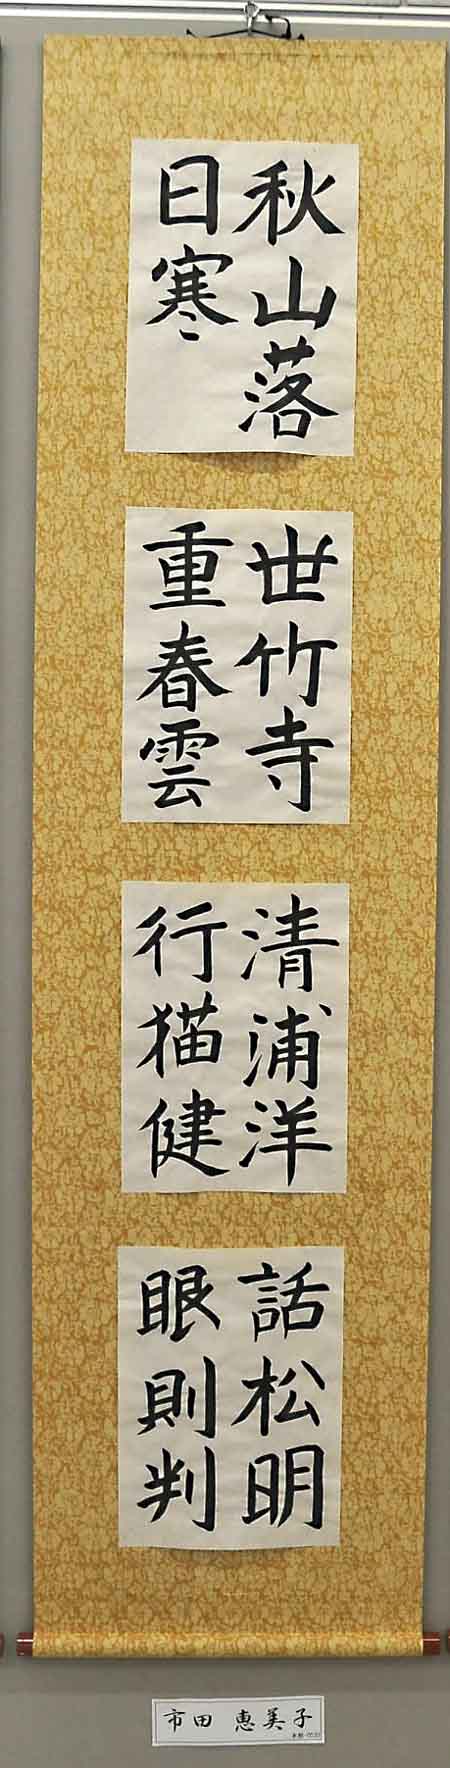 秋山落
日寒
世竹寺
重春雲
清浦洋
行猫健
話松明
眼則判
市田 恵美子